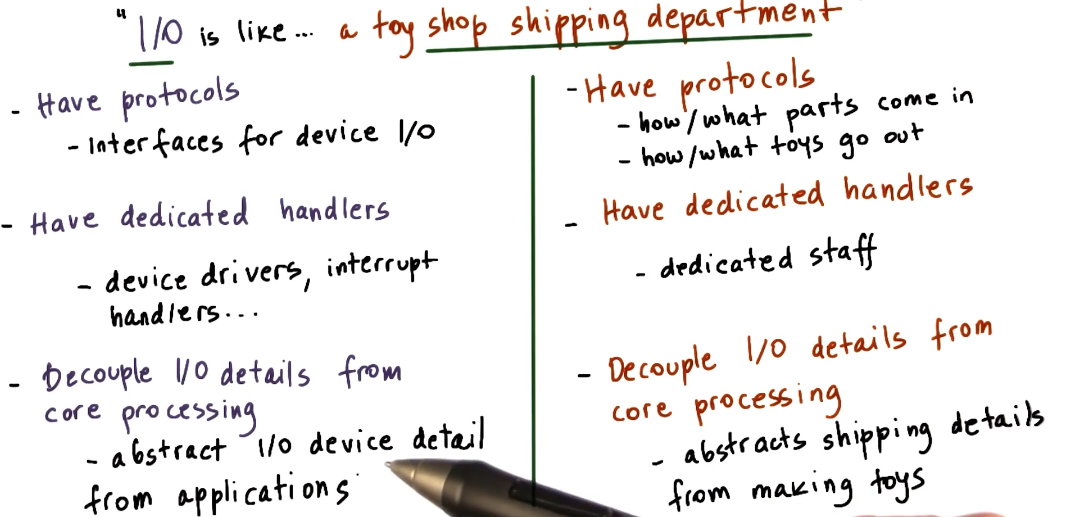 "I/O is like... a toy shop shipping department"
- Have protocols
- interfaces for device I/O
- Have dedicated handlers
- device drivers, interrupt
handlers...
- Decouple I/O details from
core processing
- abstract I/O device detail
from applications
- Have protocols
- how/what parts come in
- how/what toys go out
- Have dedicated handlers
- dedicated staff
- Decouple I/O details from
core processing
- abstracts shipping details
from making toys